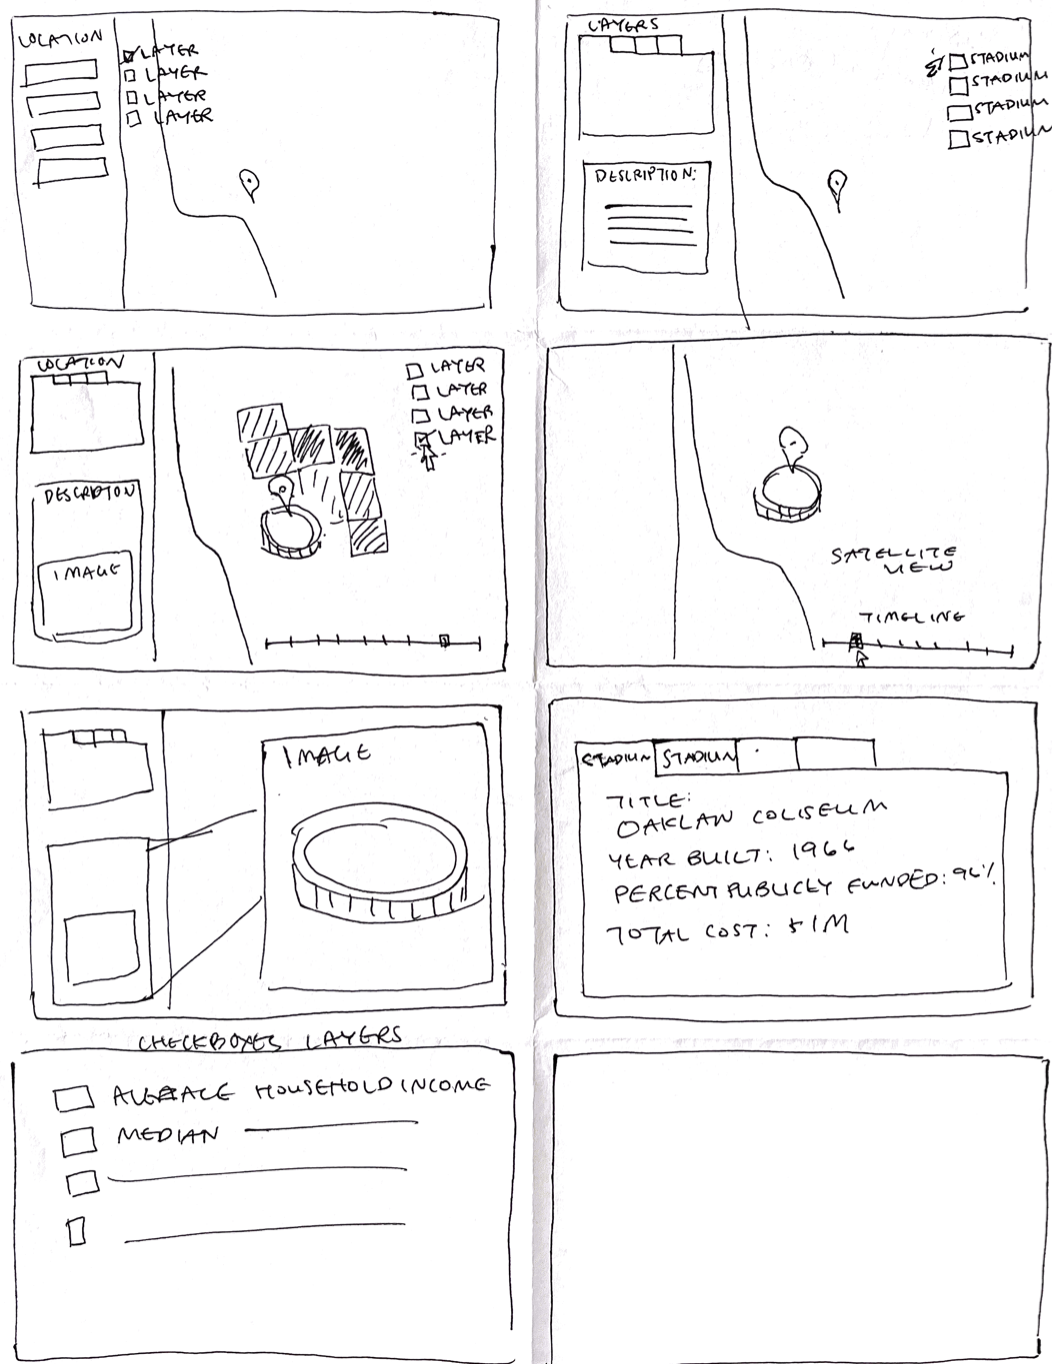 LOCATION
LAYER
LAYER
LAYER
LAYER
LAYERS
STADIUM
STADIUM
STADIUM
STADIUM
DESCRIPTION:
LOCATION
LAYER
LAYER
LAYER
LAYER
DESCRIPTION
IMAGE
SATELLITE
VIEW
TIMELINE
IMAGE
STADIUM STADIUM
TITLE:
OAKLAN COLISEUM
YEAR BUILT: 1966
PERCENT PUBLICLY FUNDED: 96%
TOTAL COST: $1M
CHECKBOXES LAYERS
AVERAGE HOUSEHOLD INCOME
MEDIAN